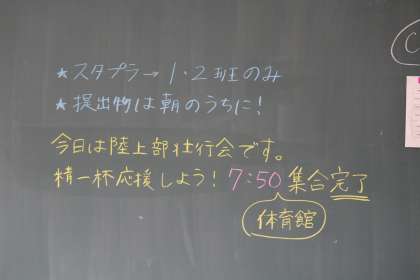 ★スタプラ→1・2班のみ
★提出物は朝のうちに!
今日は陸上部壮行会です。
精一杯応援しよう! 7:50 集合完了
体育館